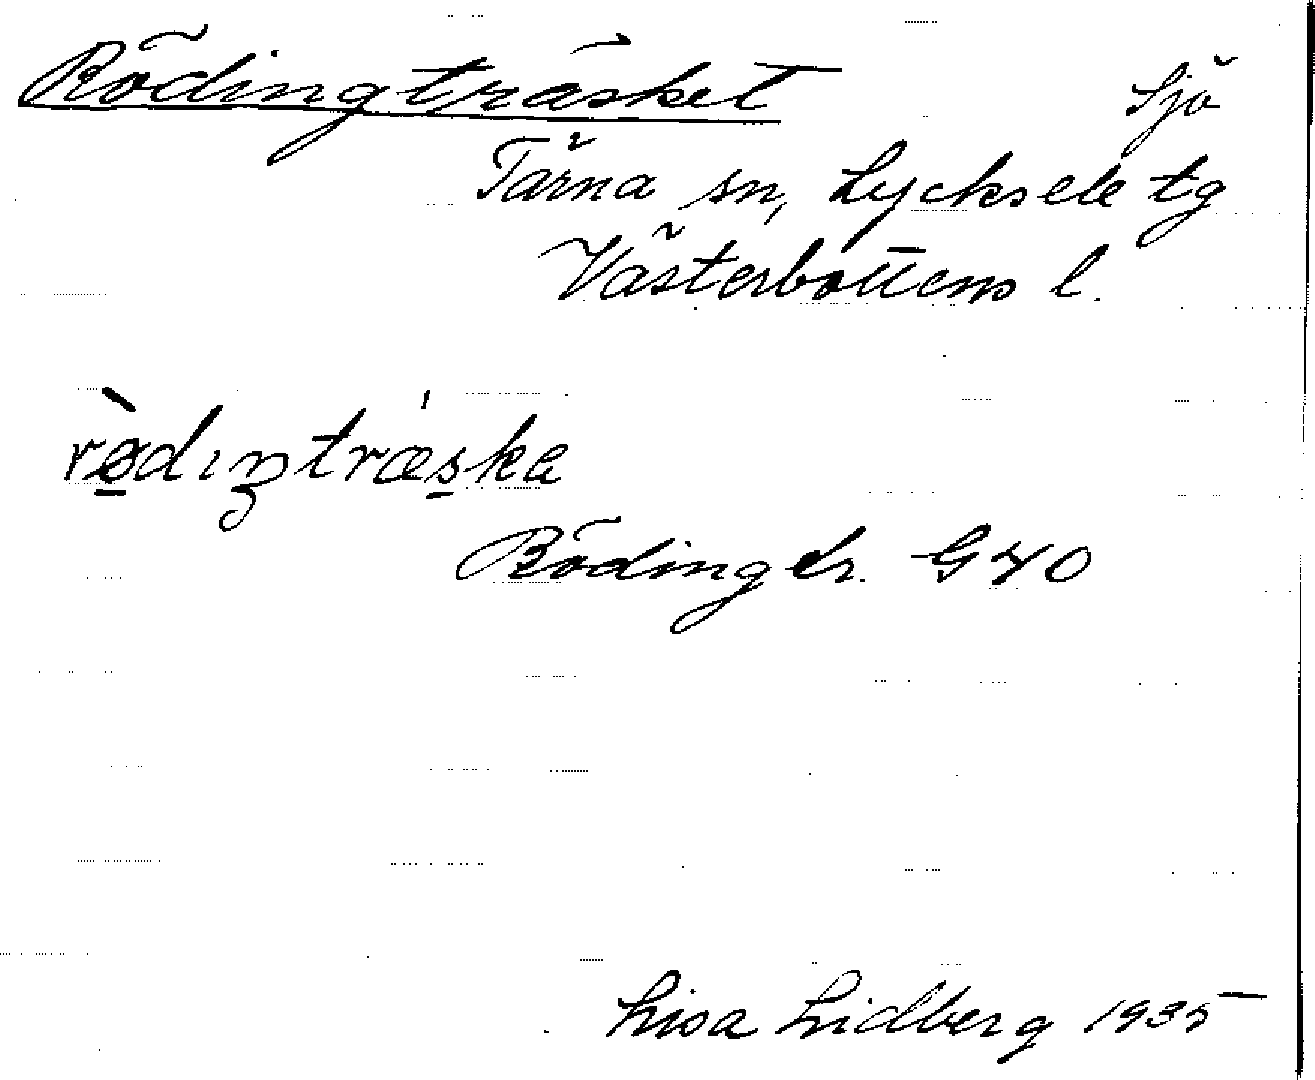 Rödingträsket
Sjö
Tärna sn, Lycksele tg
Västerbottens l.
rødıŋtræska
Röding G40
Lisa Lidberg 1935